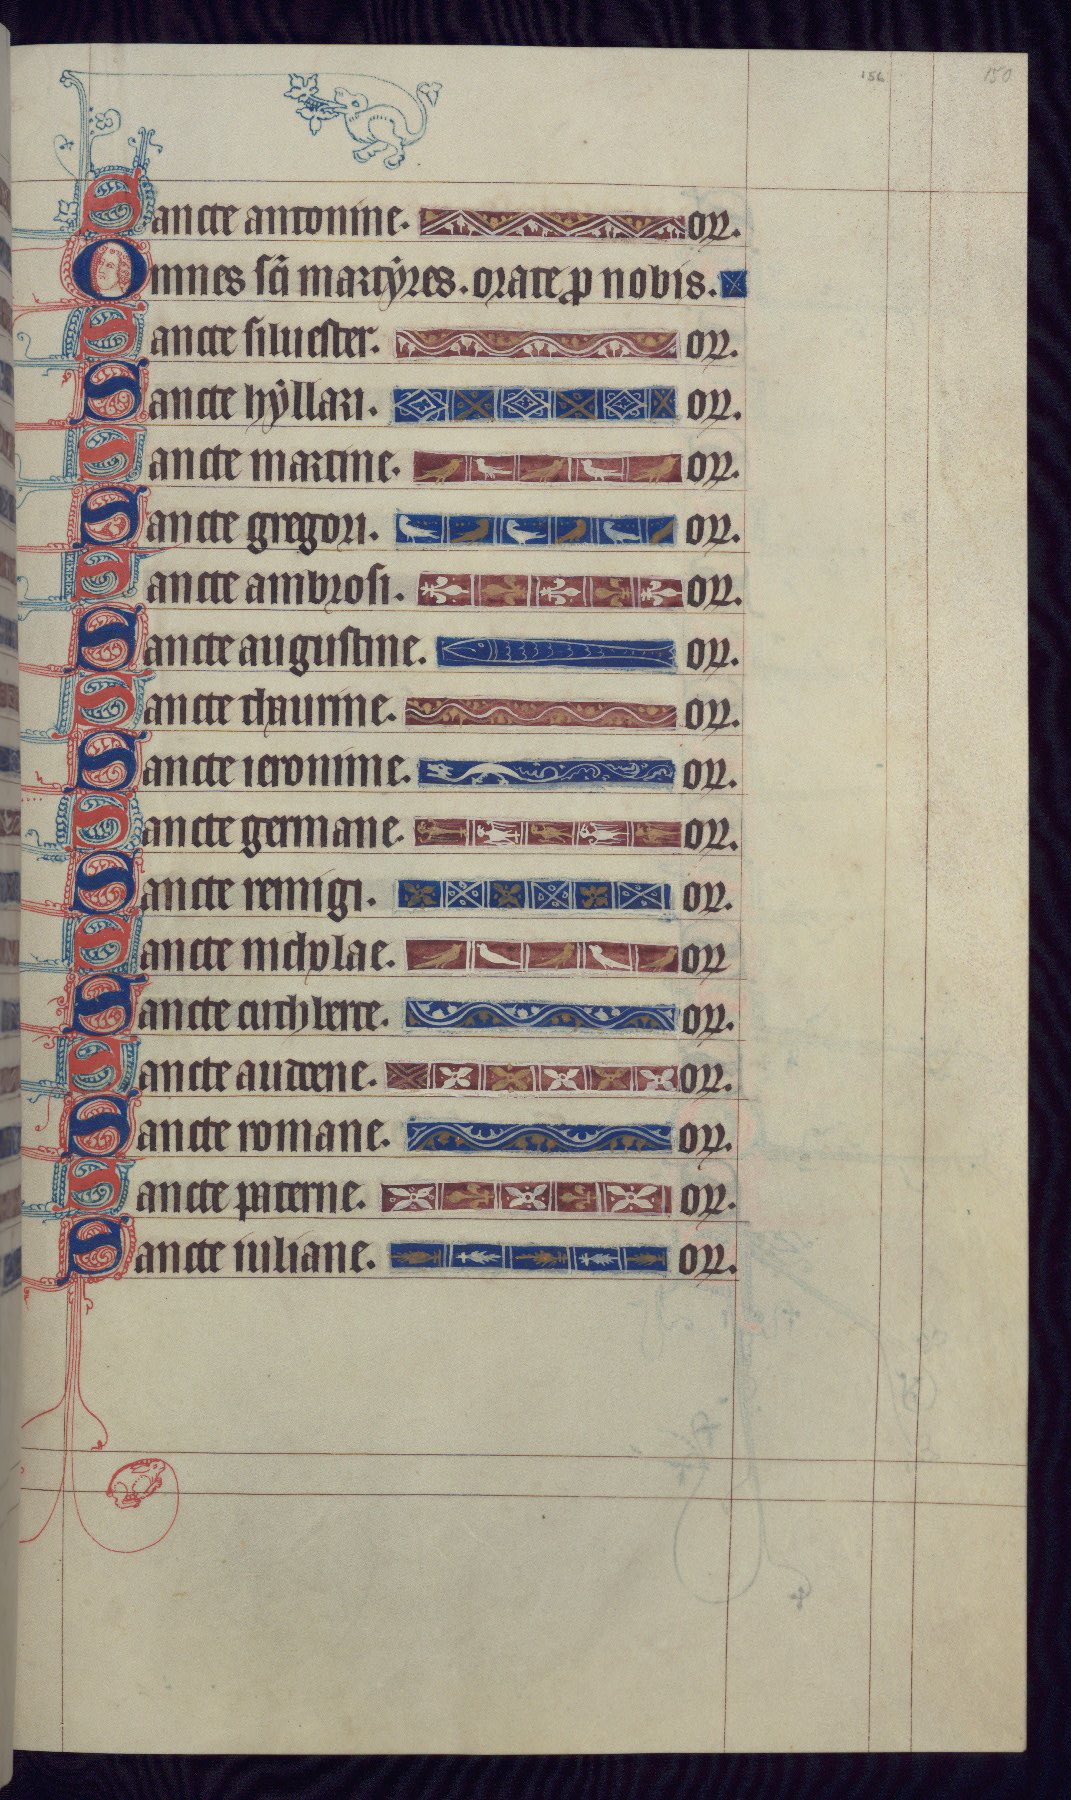 156 150
Sancte antonine. or.
Omnes sci martyres. orate p nobis.
Sancte silvester. or.
Sancte hyllari. or.
Sancte martine. or.
Sancte gregori. or.
Sancte ambrosi. or.
Sancte augustine. or.
Sancte thaurine. or.
Sancte ieronime. or.
Sancte germane. or.
Sancte remigi. or.
Sancte nicholae. or
Sancte cuthberte. or.
Sancte audoene. or.
Sancte romane. or.
Sancte paterne. or.
Sancte iuliane. or.